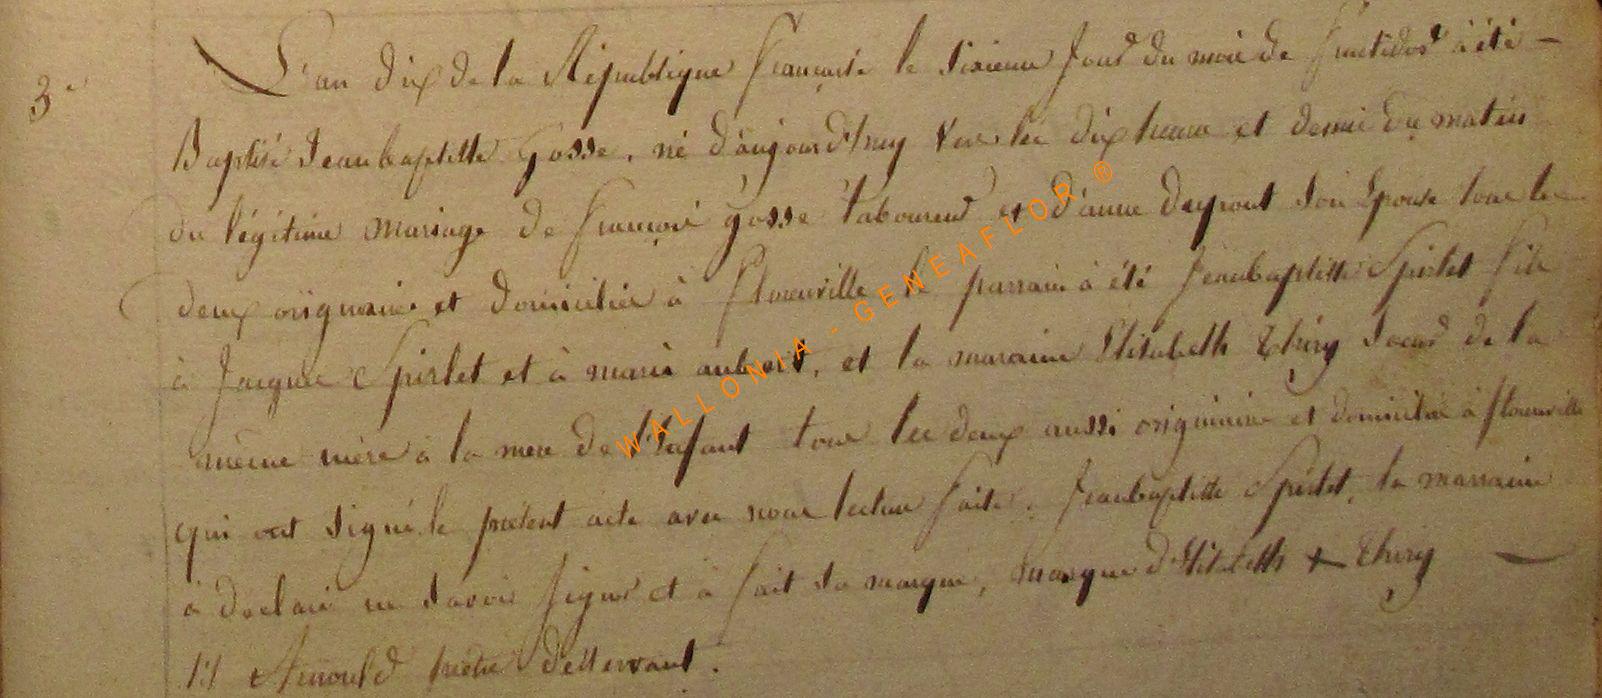 3e
L'an dix de la République française le sixieme jour du mois de fructidor à été -
Baptisé Jeanbaptiste Gosse, né d'aujourd'huy vers les dix heures et demie du matin
du légitime mariage de françois gosse laboureur et d'anne Deprout son Epouse tous les
deux originaires et domiciliés à florenville le parrain à été Jeanbaptiste Spirlet fils
à Jacques Spirlet et à marie aubert, et la maraine Elisabeth Thiry soeur de la
même mère à la mere de l'enfant tous les deux aussi originaire et domicilié à florenville
qui ont signé le présent acte avec nous lecture faite. Jeanbaptiste Spirlet, la marraine
à déclaré ne savoir signer et à fait sa marque, marque d'Elisabeth + Thiry -
Arnould prêtre desservant.
WALLONIA - GENEAFLOR ®